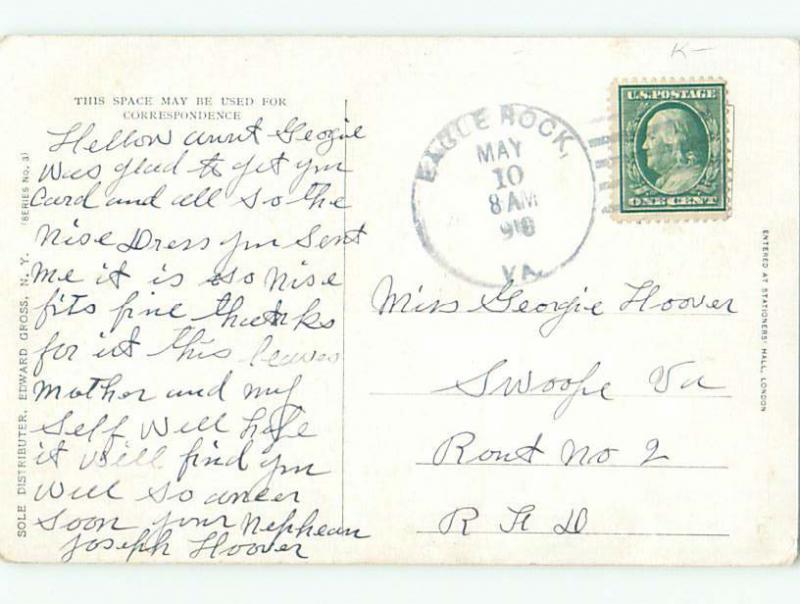 K-
THIS SPACE MAY BE USED FOR
CORRESPONDENCE
Hellow aunt Georgie
Was glad to get you
Card and all so the
Nise Dress you Sent
me it is so nise
fits fine thanks
for it this leaves
mother and my
Self Well hope
it will find you
Well so ancer
Soon your Nephean
Joseph Hoover
SOLE DISTRIBUTER, EDWARD GROSS, N. Y. (SERIES NO. 3)
EAGLE ROCK,
MAY
10
8 AM
VA.
U.S. POSTAGE
ONE CENT
Miss Georgie Hoover
Swoope Va
Rout No 2
R F D
ENTERED AT STATIONERS' HALL, LONDON